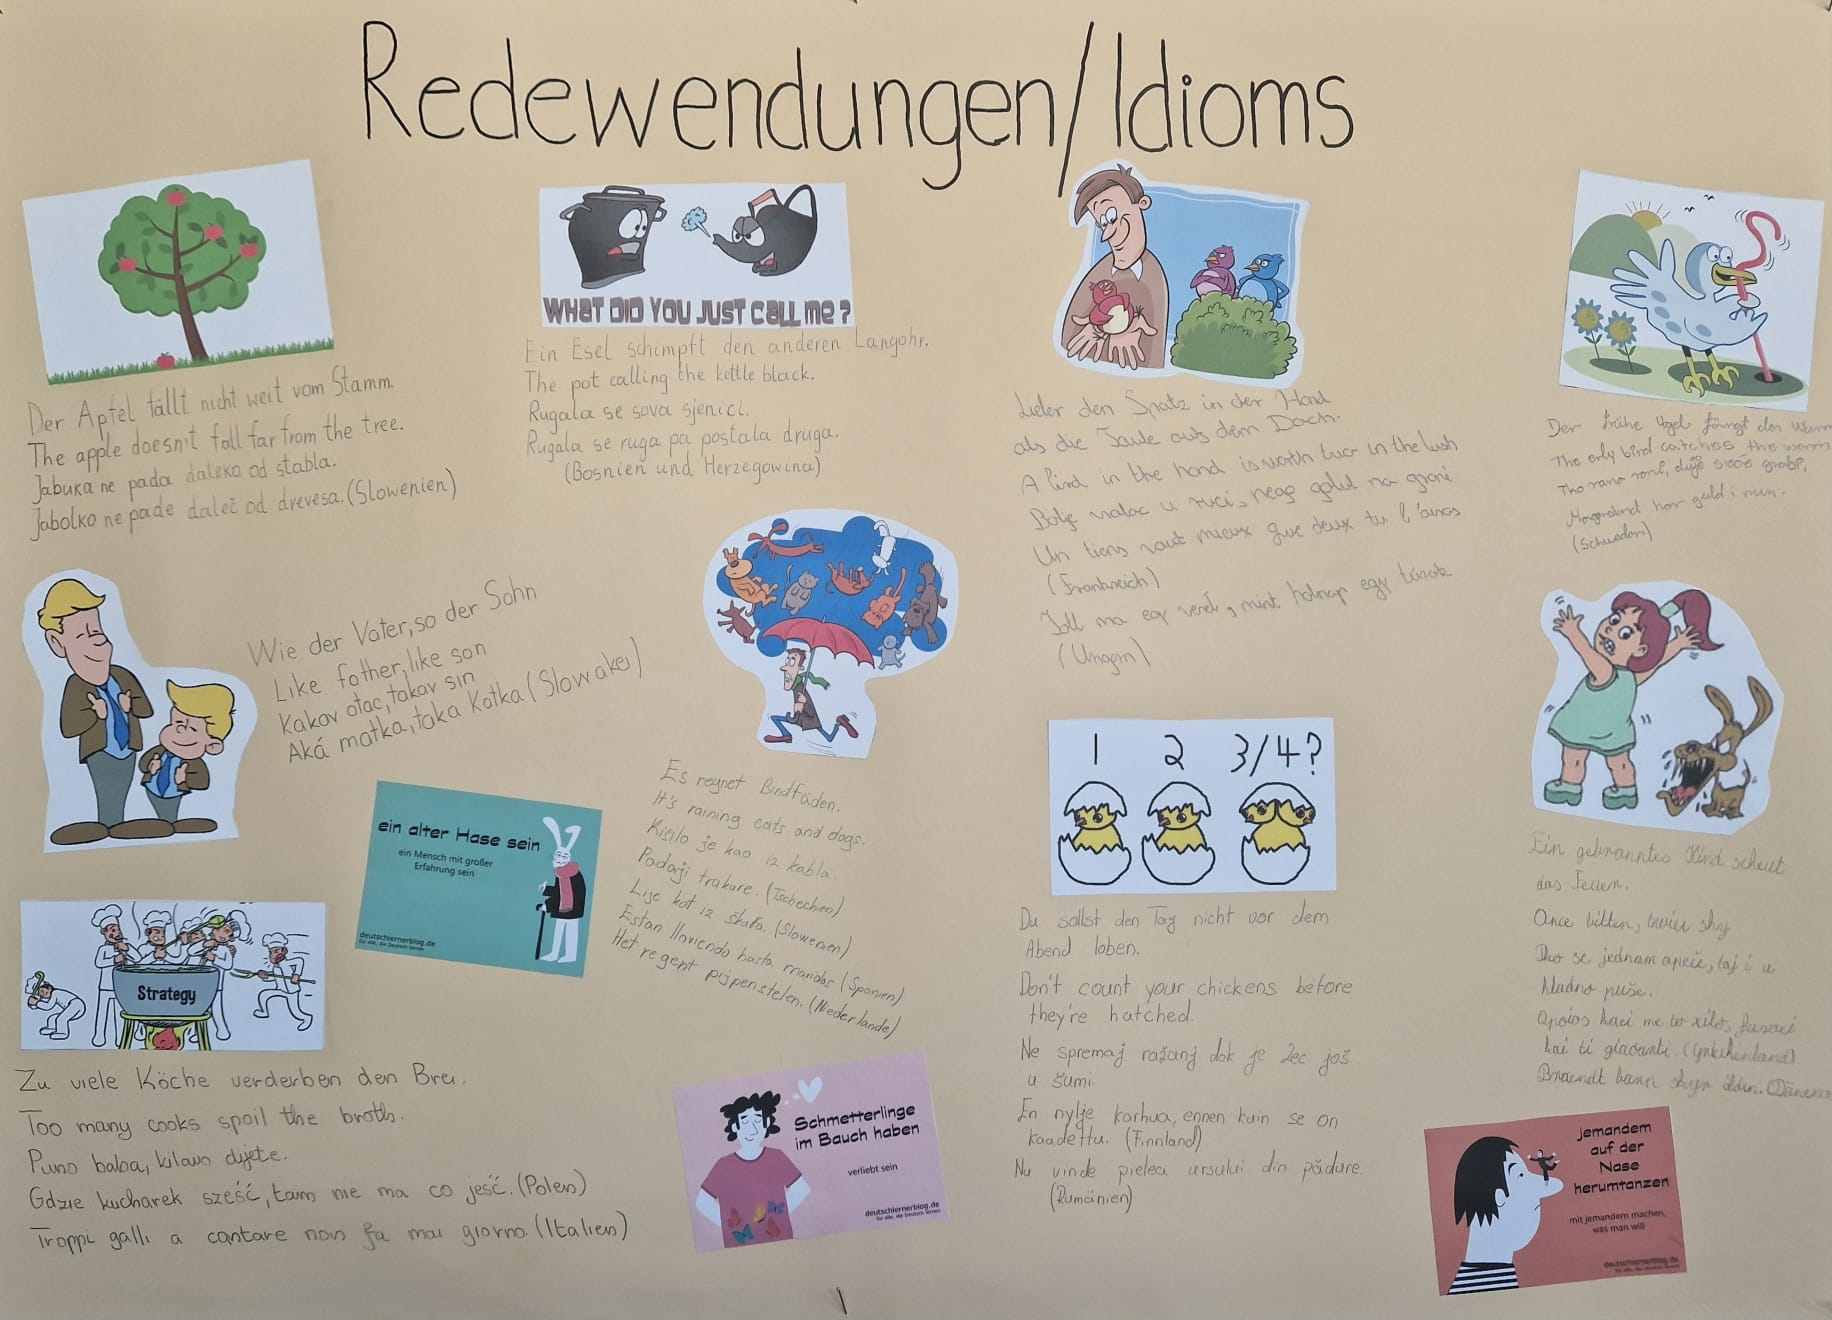 Redewendungen/Idioms
WHAT DID YOU JUST CALL ME?
Der Apfel fällt nicht weit vom Stamm.
The apple doesn't fall far from the tree.
Jabuka ne pada daleko od stabla.
Jabolko ne pade daleč od drevesa. (Slowenien)
Ein Esel schimpft den anderen Langohr.
The pot calling the kettle black.
Rugala se sova sjenici.
Rugala se ruga pa postala druga.
(Bosnien und Herzegowina)
Lieber den Spatz in der Hand
als die Taube auf dem Dach.
A bird in the hand is worth two in the bush
Bolje vrabac u ruci, nego golub na grani
Un tiens vaut mieux que deux tu l'auras
(Frankreich)
ma egy veréb, mint holnap egy túzok
(Ungarn)
Der frühe Vogel fängt den Wurm
The erly bird catches the worm
Tko rano rani, dvije sreće grabi,
Morgenstund har guld i mun.
(Schweden)
Wie der Vater, so der Sohn
Like father, like son
Kakav otac, takav sin
Aká matka, taka Katka (Slowakei)
Es regnet Bindfäden.
It's raining cats and dogs.
Kišilo je kao iz kabla.
Padaji trakare. (Tschechien)
Lije kot iz škafa. (Slowenien)
Estan lloviendo hasta maridos (Spanien)
Het regent pijpenstelen. (Niederlande)
ein alter Hase sein
ein Mensch mit großer
Erfahrung sein
deutschlernerblog.de
für alle, die Deutsch lernen
Strategy
Zu viele Köche verderben den Brei.
Too many cooks spoil the broth.
Puno baba, kilavo dijete.
Gdzie kucharek sześć, tam nie ma co jeść. (Polen)
Troppi galli a cantare non fa mai giorno. (Italien)
Schmetterlinge
im Bauch haben
verliebt sein
deutschlernerblog.de
für alle, die Deutsch lernen
1 2 3/4?
Du sollst den Tag nicht vor dem
Abend loben.
Don't count your chickens before
they're hatched.
Ne spremaj ražanj dok je zec još
u šumi.
En nylje karhua, ennen kuin se on
kaadettu. (Finnland)
Nu vinde pielea ursului din pădure.
(Rumänien)
Ein gebranntes Kind scheut
das Feuer.
Once bitten, twice shy
Tko se jednom opeče, taj i u
hladno puše.
kai ti
Braendt barn skyr ilden.
jemandem
auf der
Nase
herumtanzen
mit jemandem machen,
was man will
deutschlernerblog.de
für alle, die Deutsch lernen